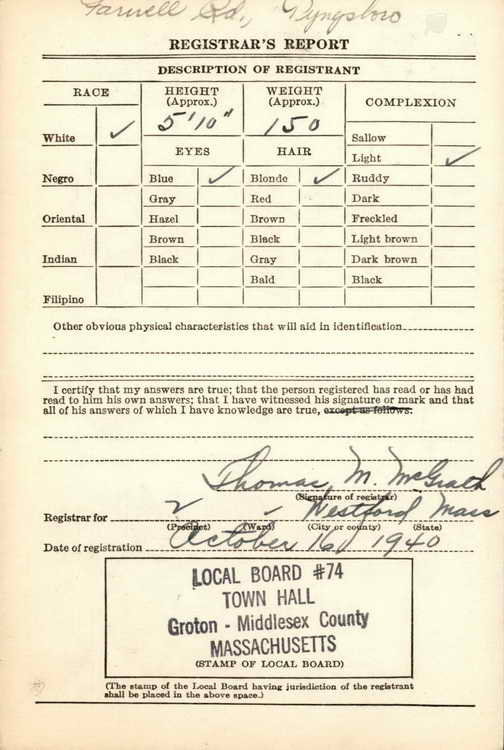 Farwell Rd., Tyngsboro
REGISTRAR'S REPORT
DESCRIPTION OF REGISTRANT
RACE
HEIGHT
(Approx.)
WEIGHT
(Approx.)
COMPLEXION
5'10"
150
White ✓
EYES
HAIR
Sallow
Light ✓
Negro
Blue ✓
Blonde ✓
Ruddy
Gray
Red
Dark
Oriental
Hazel
Brown
Freckled
Brown
Black
Light brown
Indian
Black
Gray
Dark brown
Bald
Black
Filipino
Other obvious physical characteristics that will aid in identification
I certify that my answers are true; that the person registered has read or has had
read to him his own answers; that I have witnessed his signature or mark and that
all of his answers of which I have knowledge are true, except as follows:
Thomas M. McGrath
(Signature of registrar)
Registrar for 2 - Westford Mass
(Precinct) (Ward) (City or county) (State)
Date of registration October 16, 1940
LOCAL BOARD #74
TOWN HALL
Groton - Middlesex County
MASSACHUSETTS
(STAMP OF LOCAL BOARD)
(The stamp of the Local Board having jurisdiction of the registrant
shall be placed in the above space.)